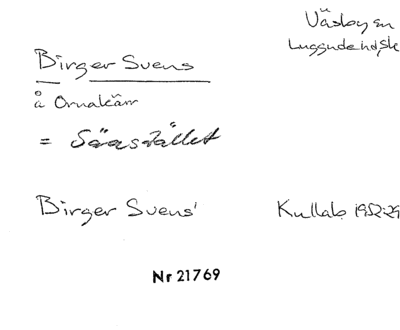 Väsby sn
Luggude hd, Sk
Birger Svens
å Ornakärr
= Såastället
Birger Svens'
Kullab. 1952:29
Nr 21769